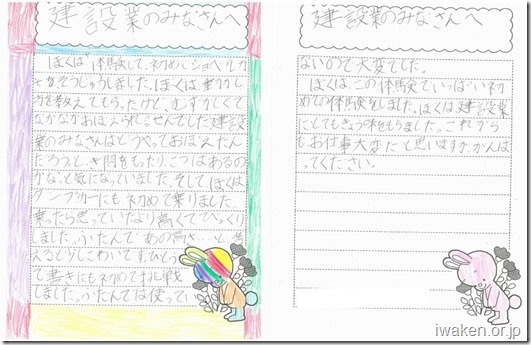 建設業のみなさんへ
ぼくは、体験して、初めてショベルカー
をそうじゅうしました。ぼくは、乗りかし
方を教えてもらったけど、むずかしくて
なかなかおぼえられませんでした。建設
業のみなさんはどうやっておぼえたん
だろうと、ぎ問をもったり、こつはあるの
かなって気になっていました。そして、ぼくは
ダンプカーにも初めて乗りました。
乗ったら思っていたより高くてびっくり
しました。ふだんであの高さ
えると少しこわいです。ひとつ
て書きにも初めて挑戦
しました。ふだんでは使って
建設業のみなさんへ
ないので大変でした。
ぼくは、この体験でいっぱい初
めての体験をしました。ぼくは建設業
にとてもきょう味をもちました。これから
もお仕事大変だと思いますが、がんば
ってください。
iwaken.or.jp